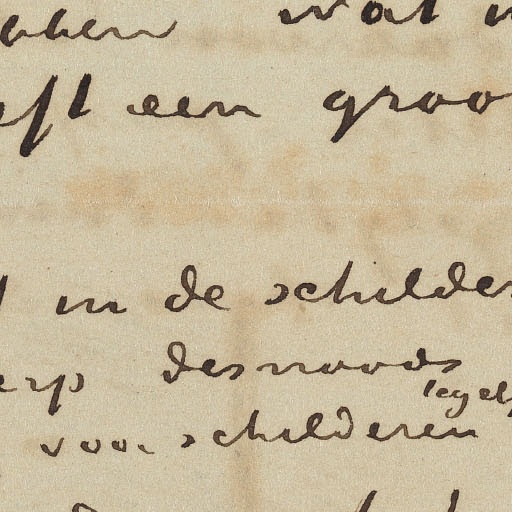 bben wat
eft een groo
in de schilder
erp desnoods
tegel
voor schilderen